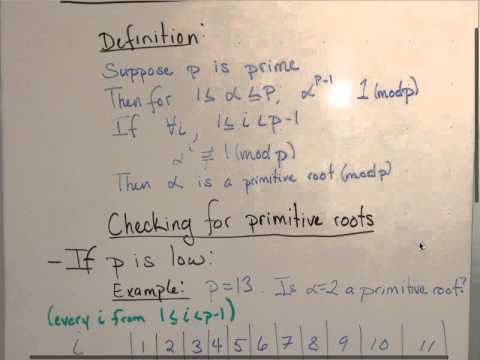 Definition:
Suppose p is prime
Then for 1≤α≤p, α^(p-1) 1 (mod p)
If ∀i, 1≤i<p-1
α^i ≢ 1 (mod p)
Then α is a primitive root (mod p)
Checking for primitive roots
- If p is low:
Example: p=13. Is α=2 a primitive root?
(every i from 1≤i<p-1)
i | 1 | 2 | 3 | 4 | 5 | 6 | 7 | 8 | 9 | 10 | 11